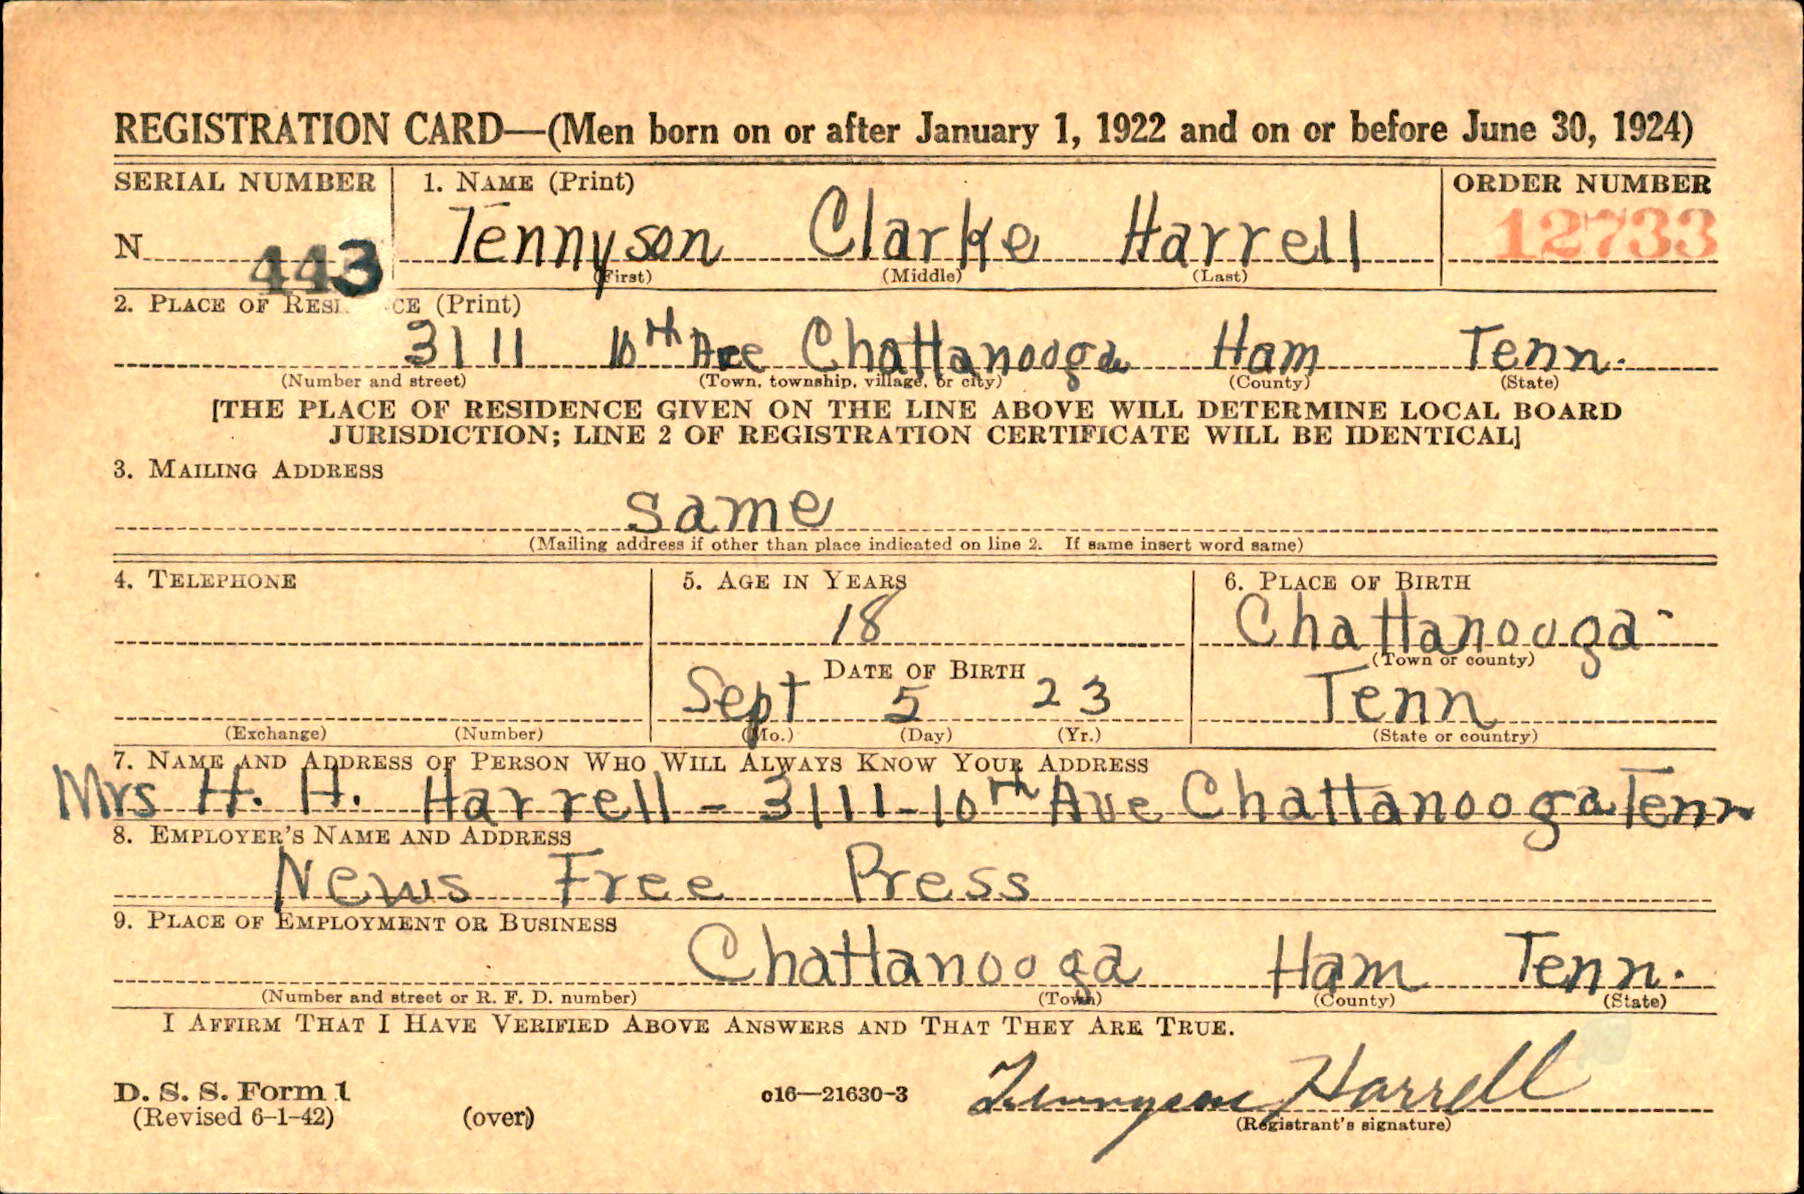 REGISTRATION CARD—(Men born on or after January 1, 1922 and on or before June 30, 1924)
SERIAL NUMBER 1. NAME (Print) ORDER NUMBER
N 443 Tennyson Clarke Harrell 12733
(First) (Middle) (Last)
2. PLACE OF RESI CE (Print)
3111 10th Ave Chattanooga Ham Tenn.
(Number and street) (Town, township, village, or city) (County) (State)
[THE PLACE OF RESIDENCE GIVEN ON THE LINE ABOVE WILL DETERMINE LOCAL BOARD
JURISDICTION; LINE 2 OF REGISTRATION CERTIFICATE WILL BE IDENTICAL]
3. MAILING ADDRESS
same
(Mailing address if other than place indicated on line 2. If same insert word same)
4. TELEPHONE 5. AGE IN YEARS 6. PLACE OF BIRTH
18 Chattanooga-
(Town or county)
DATE OF BIRTH
Sept 5 23 Tenn
(Exchange) (Number) (Mo.) (Day) (Yr.) (State or country)
7. NAME AND ADDRESS OF PERSON WHO WILL ALWAYS KNOW YOUR ADDRESS
Mrs H. H. Harrell - 3111-10th Ave Chattanooga Tenn
8. EMPLOYER'S NAME AND ADDRESS
News Free Press
9. PLACE OF EMPLOYMENT OR BUSINESS
Chattanooga Ham Tenn.
(Number and street or R. F. D. number) (Town) (County) (State)
I AFFIRM THAT I HAVE VERIFIED ABOVE ANSWERS AND THAT THEY ARE TRUE.
D. S. S. Form 1 c16—21630-3 Tennyson Harrell
(Revised 6-1-42) (over) (Registrant's signature)